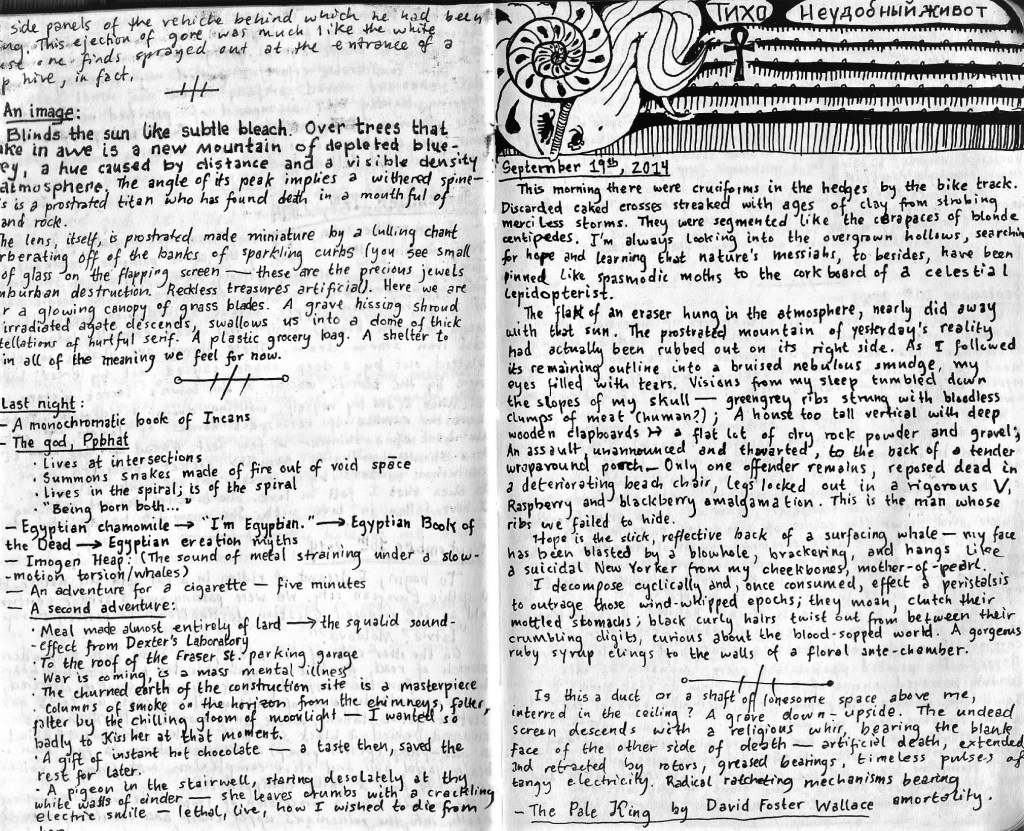 side panels of the vehicle behind which he had been
ng. This ejection of gore was much like the white
one finds sprayed out at the entrance of a
p hive, in fact.
An image:
Blinds the sun like subtle bleach. Over trees that
ake in awe is a new mountain of depleted blue-
ey, a hue caused by distance and a visible density
atmosphere. The angle of its peak implies a withered spine—
is is a prostrated titan who has found death in a mouthful of
and rock.
he lens, itself, is prostrated made miniature by a lulling chant
rberating off of the banks of sparkling curbs (you see small
of glass on the flapping screen — these are the precious jewels
nburban destruction. Reckless treasures artificial). Here we are
r a glowing canopy of grass blades. A grave hissing shroud
irradiated agate descends, swallows us into a dome of thick
tellations of hurtful serif. A plastic grocery bag. A shelter to
in all of the meaning we feel for now.
Last night:
– A monochromatic book of Incans
– The god, Pophat
· Lives at intersections
· Summons snakes made of fire out of void space
· Lives in the spiral; is of the spiral
· "Being born both...
– Egyptian chamomile → "I'm Egyptian." → Egyptian Book of
the Dead → Egyptian creation myths
– Imogen Heap: (The sound of metal straining under a slow-
-motion torsion/whales)
– An adventure for a cigarette — five minutes
– A second adventure:
· Meal made almost entirely of lard → the squalid sound-
-effect from Dexter's Laboratory
· To the roof of the Fraser St. parking garage
· War is coming, is a mass mental illness
· The churned earth of the construction site is a masterpiece
· Columns of smoke on the horizon from the chimneys, falter,
falter by the chilling gloom of moonlight — I wanted so
badly to kiss her at that moment.
· A gift of instant hot chocolate — a taste then, saved the
rest for later.
· A pigeon in the stairwell, staring desolately at thy
white walls of cinder — she leaves crumbs with a crackling
electric smile — lethal, live, how I wished to die from
ТИХО
Неудобный живот
September 19th, 2014
This morning there were cruciforms in the hedges by the bike track.
Discarded caked crosses streaked with ages of clay from strobing
merciless storms. They were segmented like the carapaces of blonde
centipedes. I'm always looking into the overgrown hollows, searchin
for hope and learning that nature's messiahs, to besides, have been
pinned like spasmodic moths to the cork board of a celestial
lepidopterist.
The flak of an eraser hung in the atmosphere, nearly did away
with that sun. The prostrated mountain of yesterday's reality
had actually been rubbed out on its right side. As I followed
its remaining outline into a bruised nebulous smudge, my
eyes filled with tears. Visions from my sleep tumbled down
the slopes of my skull — greengrey ribs strung with bloodless
clumps of meat (human?); A house too tall vertical with deep
wooden clapboards ↦ a flat lot of dry rock powder and gravel;
An assault, unannounced and thwarted, to the back of a tender
wraparound porch — Only one offender remains, reposed dead in
a deteriorating beach chair, legs locked out in a rigorous V,
Raspberry and blackberry amalgamation. This is the man whose
ribs we failed to hide.
Hope is the slick, reflective back of a surfacing whale — my face
has been blasted by a blowhole, brackering, and hangs like
a suicidal New Yorker from my cheekbones, mother-of-pearl.
I decompose cyclically and, once consumed, effect a peristalsis
to outrage those wind-whipped epochs; they moan, clutch their
mottled stomachs; black curly hairs twist out from between their
crumbling digits, curious about the blood-sopped world. A gorgeous
ruby syrup clings to the walls of a floral ante-chamber.
Is this a duct or a shaft of lonesome space above me,
interred in the ceiling? A grave down-upside. The undead
screen descends with a religious whir, bearing the blank
face of the other side of death — artificial death, extended
and retracted by rotors, greased bearings, timeless pulses of
tangy electricity. Radical ratcheting mechanisms bearing
amortality.
– The Pale King by David Foster Wallace